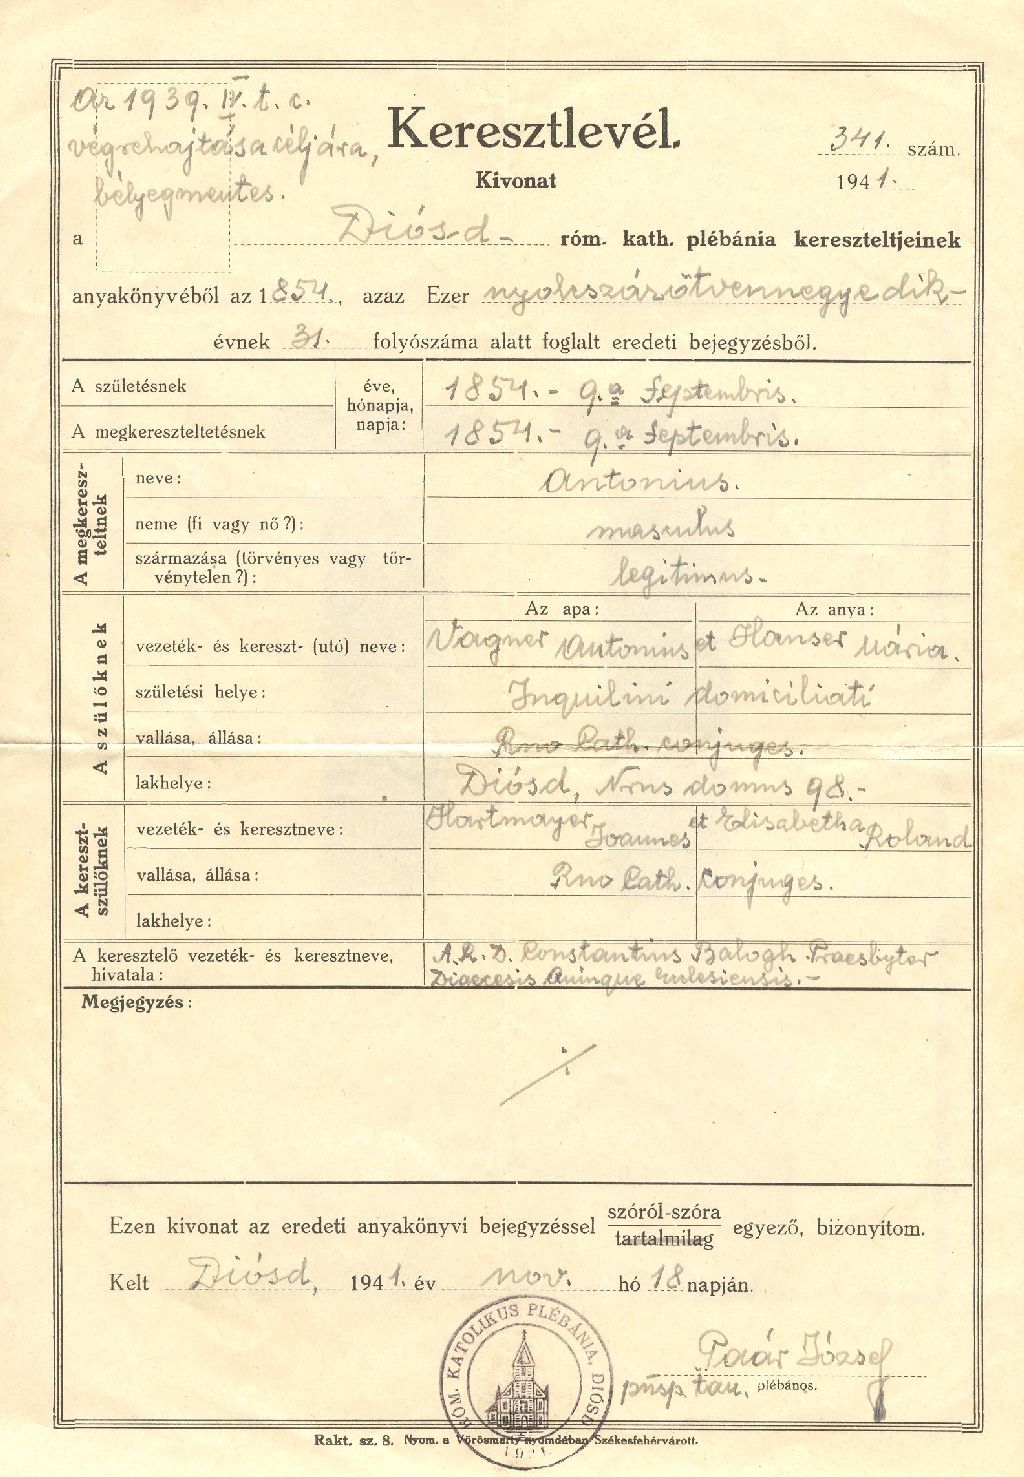 Az 1939. IV. t. c.
végrehajtása céljára,
bélyegmentes.
Keresztlevél.
341. szám.
Kivonat
1941.
a Diósd - róm. kath. plébánia kereszteltjeinek
anyakönyvéből az 1854., azaz Ezer nyolcszázötvennegyedik-
évnek 31. folyószáma alatt foglalt eredeti bejegyzésből.
A születésnek
éve, hónapja, napja:
1854.- 9.a Septembris.
A megkereszteltetésnek
1854.- 9.a Septembris.
A megkeresz-
teltnek
neve: Antonius.
neme (fi vagy nő?): masculus
származása (törvényes vagy tör-
vénytelen?): legitimus.-
A szülőknek
Az apa: Az anya:
vezeték- és kereszt- (utó) neve: Vagner Antonius et Hauser Mária.
születési helye: Inquilini domiciliati
vallása, állása: Rno Cath. conjuges.
lakhelye: Diósd, Nrus domus 98.-
A kereszt-
szülőknek
vezeték- és keresztneve: Hartmayer Joannes et Elisabetha Roland
vallása, állása: Rno Cath. conjuges.
lakhelye:
A keresztelő vezeték- és keresztneve,
hivatala:
A. R. D. Constantius Balogh Praesbyter
Diaecesis Quinque Eclesiensis.-
Megjegyzés:
Ezen kivonat az eredeti anyakönyvi bejegyzéssel szóról-szóra tartalmilag egyező, bizonyítom.
Kelt Diósd, 1941. év nov. hó 18 napján.
RÓM. KATOLIKUS PLÉBÁNIA, DIÓSD
Paár József
püsp. tan. plébános.
Rakt. sz. 8. Nyom. a Vörösmarty nyomdában Székesfehérvárott.